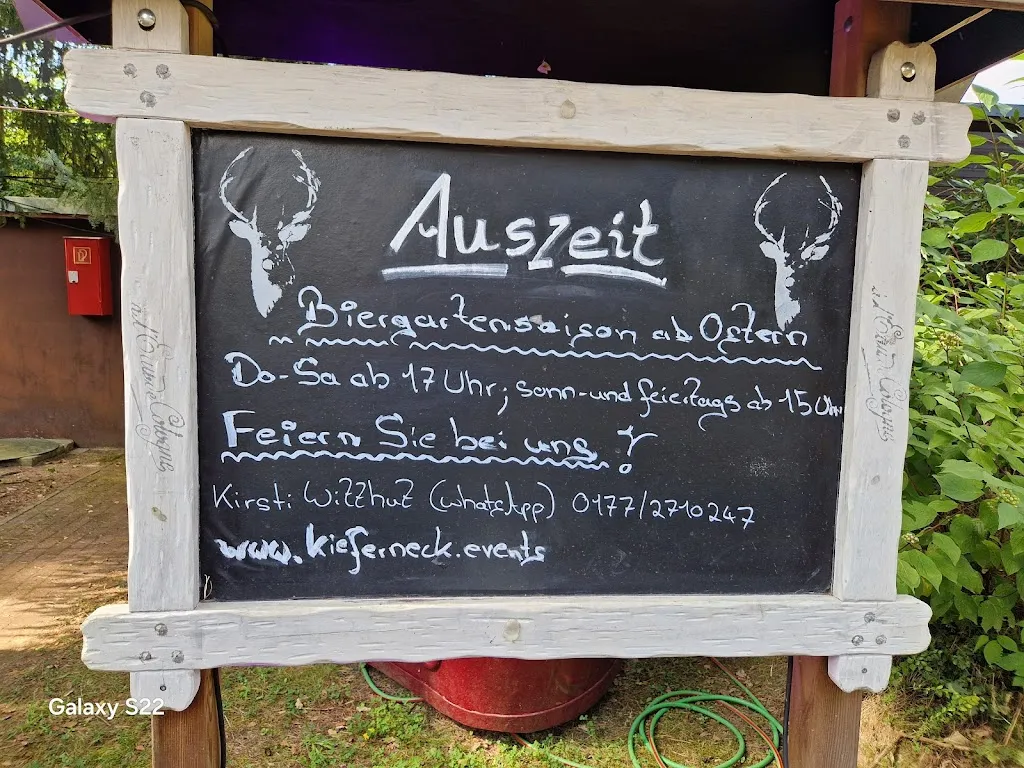 Auszeit
Biergartensaison ab Ostern
Do-Sa ab 17 Uhr; sonn-und feiertags ab 15 Uhr
Feiern Sie bei uns!
Kirsti Witzhut (WhatsApp) 0177/2710247
www.kieferneck.events
Galaxy S22